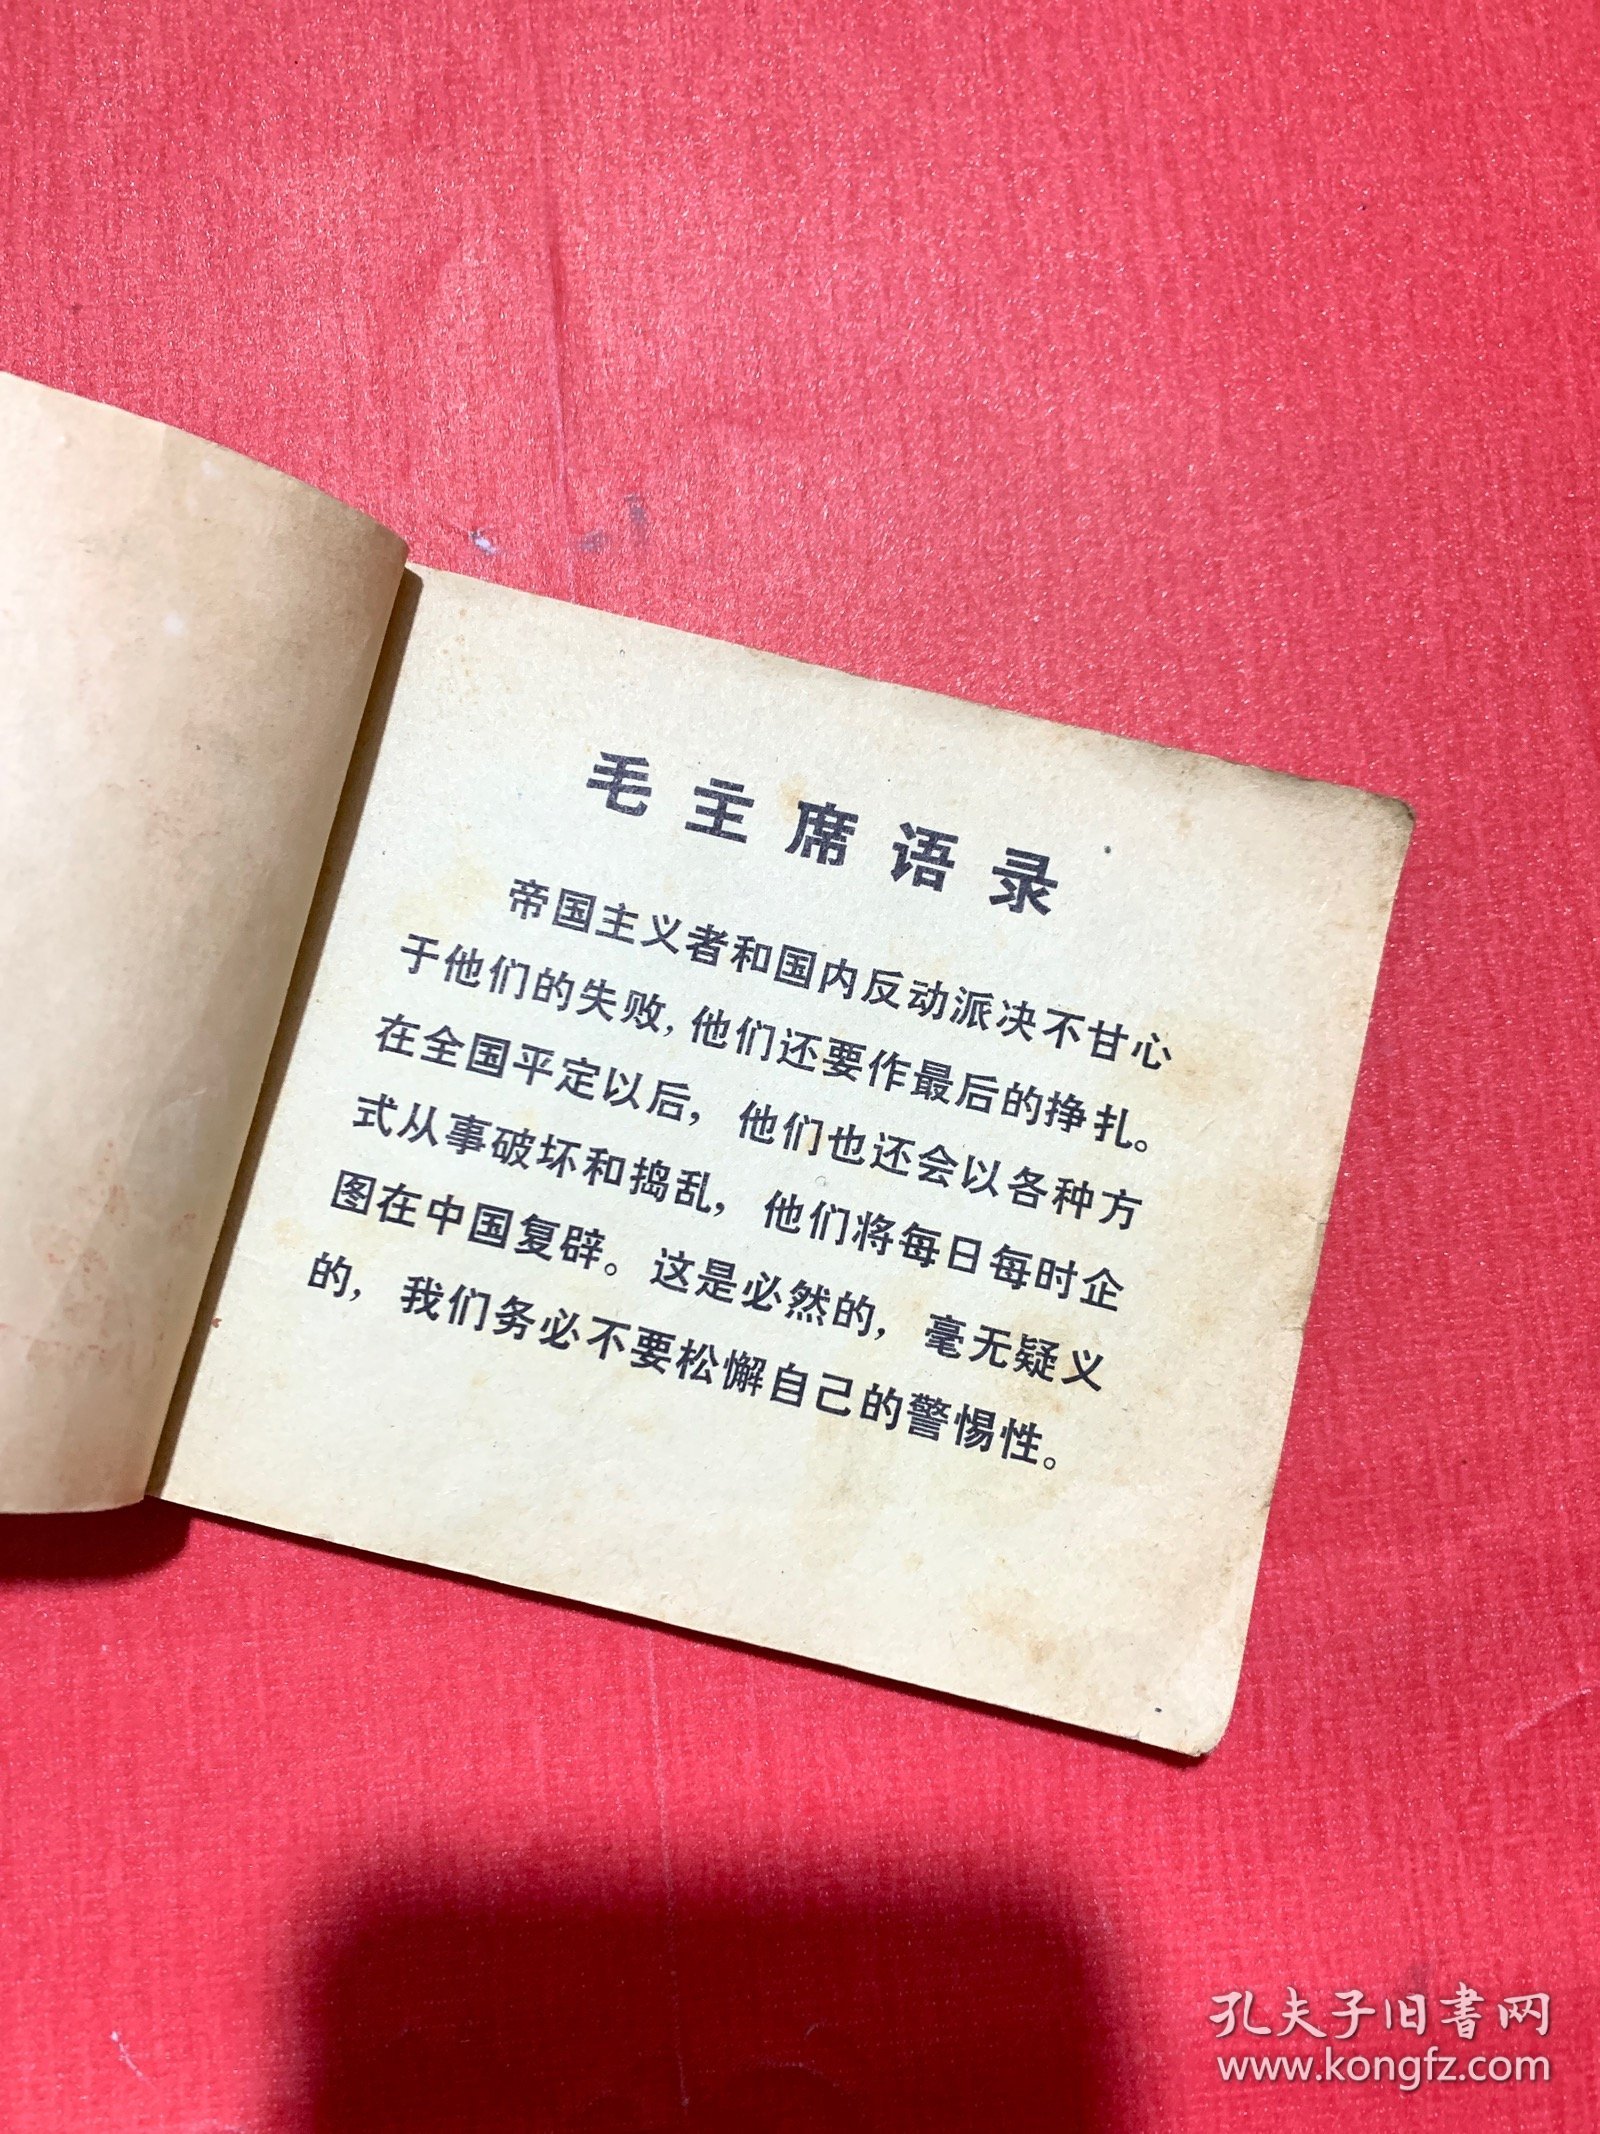 毛主席语录
帝国主义者和国内反动派决不甘心
于他们的失败，他们还要作最后的挣扎。
在全国平定以后，他们也还会以各种方
式从事破坏和捣乱，他们将每日每时企
图在中国复辟。这是必然的，毫无疑义
的，我们务必不要松懈自己的警惕性。
孔夫子旧书网
www.kongfz.com